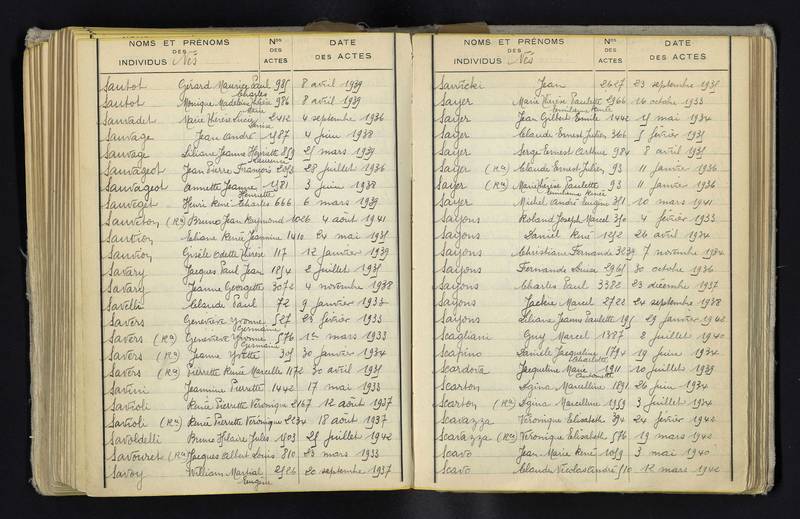 NOMS ET PRÉNOMS DES INDIVIDUS Nés
Nos DES ACTES
DATE DES ACTES
Sautot Gérard Maurice Paul Charles 985 8 avril 1939
Sautot Monique Madeleine 986 8 avril 1939
Sauvadet Marie Thérèse Lucie 2412 4 septembre 1936
Sauvage Jean André 1587 4 juin 1938
Sauvage Liliane Jeanne Henriette 859 25 mars 1939
Sauvageot Jean Pierre François 2053 28 juillet 1936
Sauvageot Annette Jeanne Henriette 1581 3 juin 1938
Sauveget Henri René Charles 666 6 mars 1939
Sauveton (Rn) Bruno Jean Raymond 1026 4 août 1941
Eliane Renée Jeannine 1410 24 mai 1935
Gisèle Odette Thérèse 117 12 janvier 1939
Savary Jacques Paul Jean 1854 2 juillet 1935
Savary Jeanne Georgette 3072 4 novembre 1938
Savelli Claude Paul 72 9 janvier 1933
Savers Geneviève Yvonne Germaine 527 23 février 1933
Savers (Rn) Geneviève Yvonne Germaine 576 1er mars 1933
Savers (Rn) Jeanne Yvette 305 30 janvier 1934
Savers (Rn) Pierrette Renée Marcelle 1172 30 avril 1935
Savini Jeannine Pierrette 1442 17 mai 1933
Savioli Renée Pierrette Véronique 2167 12 août 1937
Savioli (Rn) Renée Pierrette Véronique 2234 18 août 1937
Savoldelli Bruno Hilaire Jules 1503 25 juillet 1942
Savouret (Rn) Jacques Albert Louis 810 23 mars 1933
Savoy William Martial Eugène 2526 20 septembre 1937
NOMS ET PRÉNOMS DES INDIVIDUS Nés
Nos DES ACTES
DATE DES ACTES
Sawicki Jean 2627 23 septembre 1935
Sayer Marie Thérèse Paulette 2966 14 octobre 1933
Sayer Jean Gilbert Emile 1442 25 mai 1934
Sayer Claude Ernest Julien 366 5 février 1935
Sayer Serge Ernest Arthur 984 8 avril 1935
Sayer (Rn) Claude Ernest Julien 93 11 janvier 1936
Sayer (Rn) Marie Thérèse Paulette 93 11 janvier 1936
Sayer Michel André Eugène 351 10 mars 1941
Sayons Roland Joseph Marcel 350 4 février 1933
Sayons Daniel René 1252 26 avril 1934
Sayons Christiane Fernande 3239 7 novembre 1934
Sayons Fernande Louise 2965 30 octobre 1936
Sayons Charles Paul 3382 23 décembre 1937
Sayons Jackie Marcel 2722 24 septembre 1938
Sayons Liliane Jeanne Paulette 195 29 janvier 1942
Scagliani Guy Marcel 1387 2 juillet 1940
Scapino Danièle Jacqueline Charlotte 1794 19 juin 1934
Scardova Jacqueline Marie Antoinette 1911 10 juillet 1939
Scarton Igina Marcelline 1891 26 juin 1934
Scarton (Rn) Igina Marcelline 1959 3 juillet 1934
Scarazza Véronique Elisabeth 394 24 février 1942
Scarazza (Rn) Véronique Elisabeth 576 19 mars 1942
Scavo Jean Marie René 1059 3 mai 1940
Scavo Claude Nicolas André 510 12 mars 1942